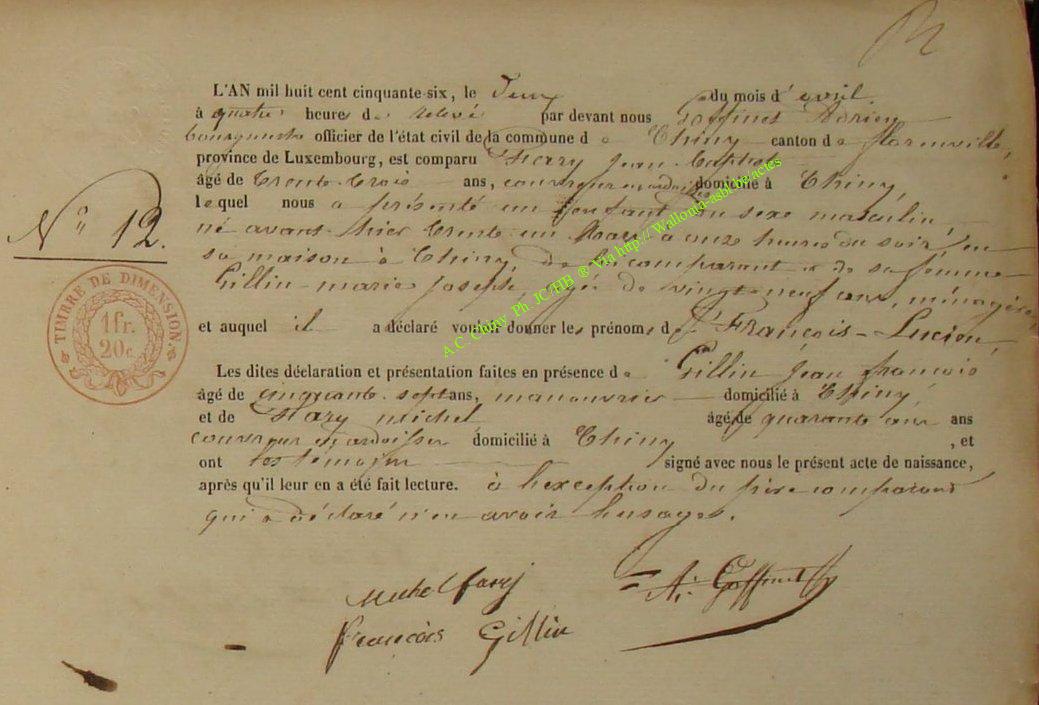 L'AN mil huit cent cinquante-six, le Deux du mois d' avril
à quatre heures de relevé par devant nous Goffinet Adrien
bourgmestre officier de l'état civil de la commune de Chiny canton de florenville,
province de Luxembourg, est comparu Harry Jean Baptiste
âgé de trente-trois ans, couvreur en ardoises domicilié à Chiny,
lequel nous a présenté un Enfant du sexe masculin,
né avant-hier trente un Mars à onze heures du soir en
sa maison à Chiny, de lui comparant et de sa femme
Gillin marie joseph, agée de vingt neuf ans, ménagère
et auquel il a déclaré vouloir donner les prénoms de François-Lucien,
Les dites déclaration et présentation faites en présence de Gillin jean françois
âgé de cinquante-sept ans, manouvrier domicilié à Chiny,
et de Harry Michel âgé de quarante ans
couvreur en ardoises domicilié à Chiny, et
ont les témoins signé avec nous le présent acte de naissance,
après qu'il leur en a été fait lecture. à l'exception du père comparant
qui a déclaré n'en avoir l'usage.
N° 12.
TIMBRE DE DIMENSION.
1 fr.
20 c.
Michel
françois Gillin
A. Goffinet
A.C. Chiny Ph JC/HB ® Via http:// Wallonia-asbl.org/actes